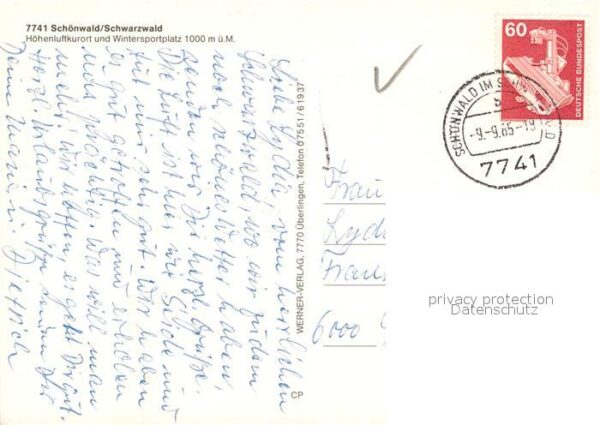 7741 Schönwald/Schwarzwald
Höhenluftkurort und Wintersportplatz 1000 m ü.M.
Liebe Lydia, vom herrlichen
Schwarzwald, wo wir zudem
noch
senden wir Dir herzl. Grüße.
Die Luft ist hier wie Seide und
tut uns sehr gut. Wir haben
es gut getroffen und erleben
was prächtig. Was will man
mehr! Wir hoffen, es geht Dir gut.
Herzl. Urlaubsgrüße senden Dir
Deine Maria u. Dietrich
WERNER-VERLAG, 7770 Überlingen, Telefon 07551/61937
CP
60
DEUTSCHE BUNDESPOST
SCHÖNWALD IM
-9.-9.85-19
7741
Frau
Lydia
6000
privacy protection
Datenschutz